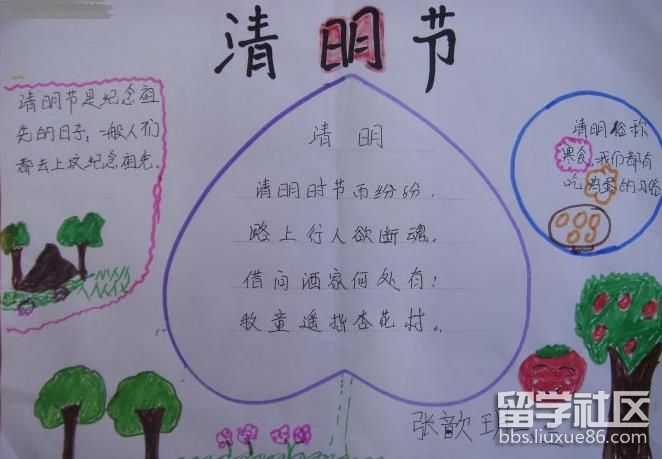 清明节
清明节是纪念祖
先的日子，一般人们
都去上坟纪念祖先。
清 明
清明时节雨纷纷，
路上行人欲断魂。
借问酒家何处有：
牧童遥指杏花村。
清明俗称
寒食，我们都有
吃鸡蛋的习俗
张歆
留学社区
bbs.liuxue86.com